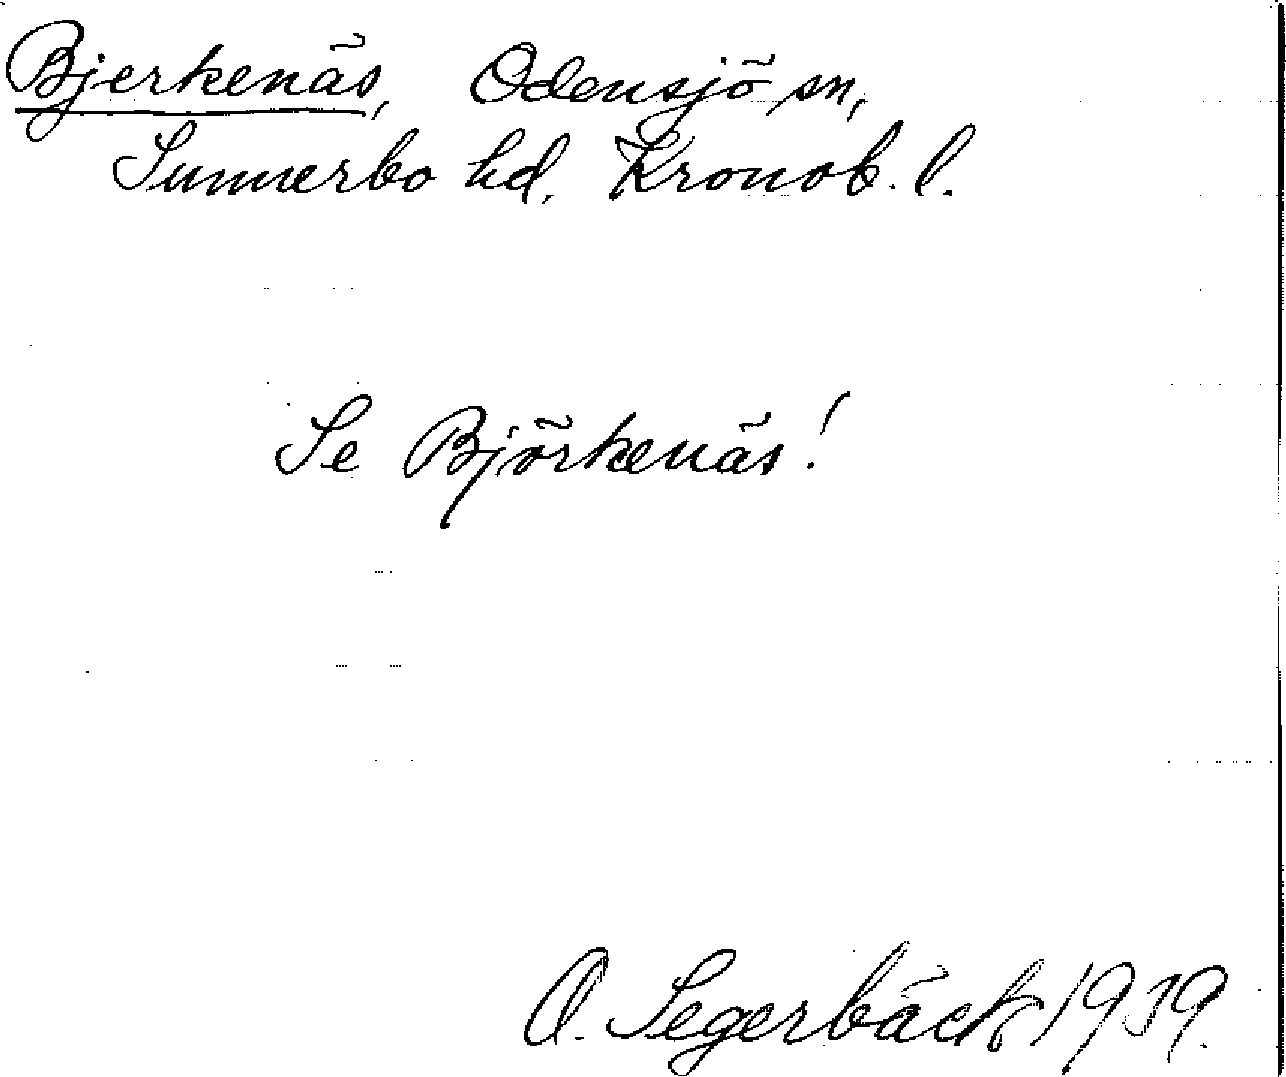 Bjerkenäs, Odensjö sn,
Sunnerbo hd, Kronob. l.
Se Björkenäs!
O. Segerbäck 1939.